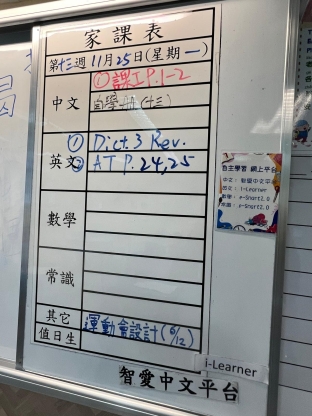 家課表
第十三週 11月25日(星期一)
中文
① 課工P.1-2
自學冊(十三)
英文
① Dict.3 Rev.
② AT P.24,25
數學
常識
其它
運動會設計(6/12)
值日生
自主學習 網上平台
中文: 智愛中文平台
英文: i-Learner
數學: e-Smart2.0
常識: e-Smart2.0
i-Learner
智愛中文平台